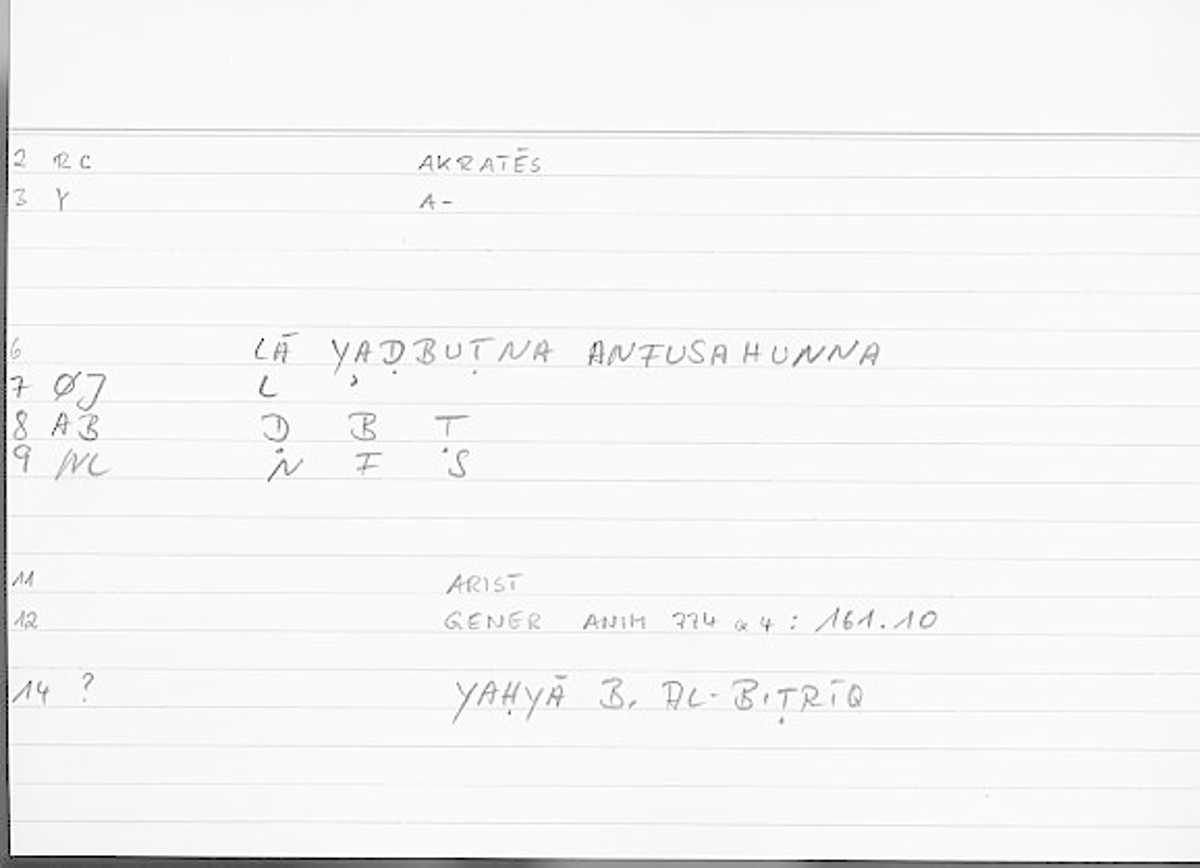 2 RC AKRATĒS
3 Y A-
6 LĀ YAḌBUṬNA ANFUSAHUNNA
7 ØJ L ʾ
8 AB Ḍ B Ṭ
9 NL N F S
11 ARIST
12 GENER ANIM 774 a 4 : 161.10
14 ? YAḤYĀ B. AL-BIṬRĪQ